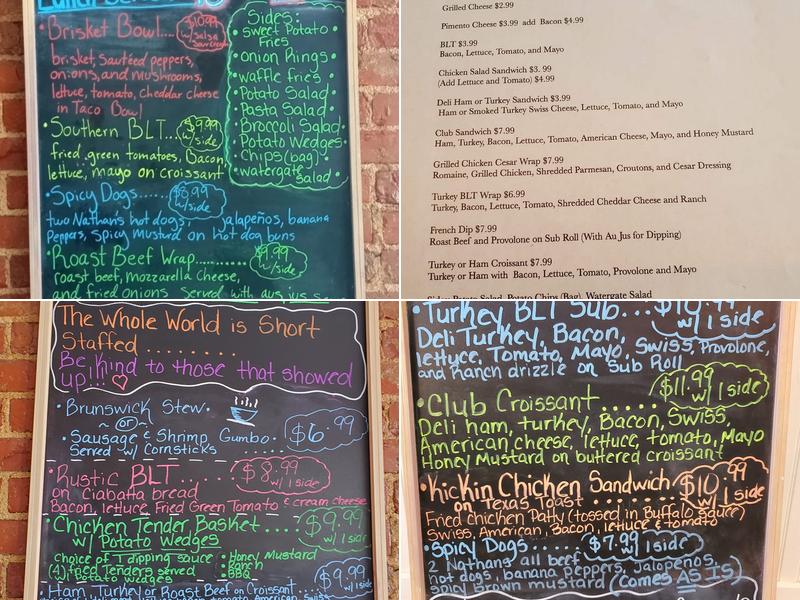 Lunch
• Brisket Bowl....
$10.99
w/salsa
sour cream
brisket, sautéed peppers,
onions, and mushrooms,
lettuce, tomato, cheddar cheese
in Taco Bowl
• Southern BLT...
$9.99
w/side
fried green tomatoes, Bacon
lettuce, mayo on croissant
• Spicy Dogs.....
$8.99
w/side
two Nathan's hot dogs, jalapeños, banana
Peppers, Spicy Mustard on hot dog buns
• Roast Beef Wrap..........
$9.99
w/side
roast beef, mozzarella cheese,
and fried onions Served with aus jus
Sides:
• sweet Potato
Fries
onion Rings •
• waffle fries •
• Potato Salad •
• Pasta Salad •
• Broccoli Salad •
• Potato Wedges •
• Chips (bag) •
• watergate
Salad •
Grilled Cheese $2.99
Pimento Cheese $3.99 add Bacon $4.99
BLT $3.99
Bacon, Lettuce, Tomato, and Mayo
Chicken Salad Sandwich $3. 99
(Add Lettuce and Tomato) $4.99
Deli Ham or Turkey Sandwich $3.99
Ham or Smoked Turkey Swiss Cheese, Lettuce, Tomato, and Mayo
Club Sandwich $7.99
Ham, Turkey, Bacon, Lettuce, Tomato, American Cheese, Mayo, and Honey Mustard
Grilled Chicken Cesar Wrap $7.99
Romaine, Grilled Chicken, Shredded Parmesan, Croutons, and Cesar Dressing
Turkey BLT Wrap $6.99
Turkey, Bacon, Lettuce, Tomato, Shredded Cheddar Cheese and Ranch
French Dip $7.99
Roast Beef and Provolone on Sub Roll (With Au Jus for Dipping)
Turkey or Ham Croissant $7.99
Turkey or Ham with Bacon, Lettuce, Tomato, Provolone and Mayo
Sides Potato Salad, Potato Chips (Bag), Watergate Salad
The Whole World is Short
Staffed ........
Be kind to those that showed
up!!! ♡
• Brunswick Stew.
~ or ~
• Sausage & Shrimp Gumbo.
Served w/ Cornsticks
$6.99
• Rustic BLT.....
$8.99
w/ 1 side
on Ciabatta bread
Bacon, lettuce, Fried Green Tomato & cream cheese
• Chicken Tender Basket....
w/ Potato Wedges
$9.99
w/ 1 side
choice of 1 dipping sauce
(4) fried tenders served
w/ Potato wedges
• Honey Mustard
• Ranch
• BBQ
• Ham, Turkey or Roast Beef on Croissant....
$9.99
w/ 1 side
tomato, American, Swiss
• Turkey BLT Sub...
$10.99
w/ 1 side
Deli Turkey, Bacon,
lettuce, Tomato, Mayo, Swiss, Provolone,
and Ranch drizzle on Sub Roll
• Club Croissant.....
$11.99
w/ 1 side
Deli ham, turkey, Bacon, Swiss,
American cheese, lettuce, tomato, Mayo
Honey Mustard on buttered croissant
• Kickin Chicken Sandwich
on Texas Toast.......
$10.99
w/ 1 side
Fried chicken Patty (tossed in Buffalo sauce)
Swiss, American, Bacon, lettuce & tomato
• Spicy Dogs....
$7.99 w/ 1 side
2 Nathans all beef
hot dogs, banana Peppers, Jalapeños,
spicy brown mustard (comes AS IS)